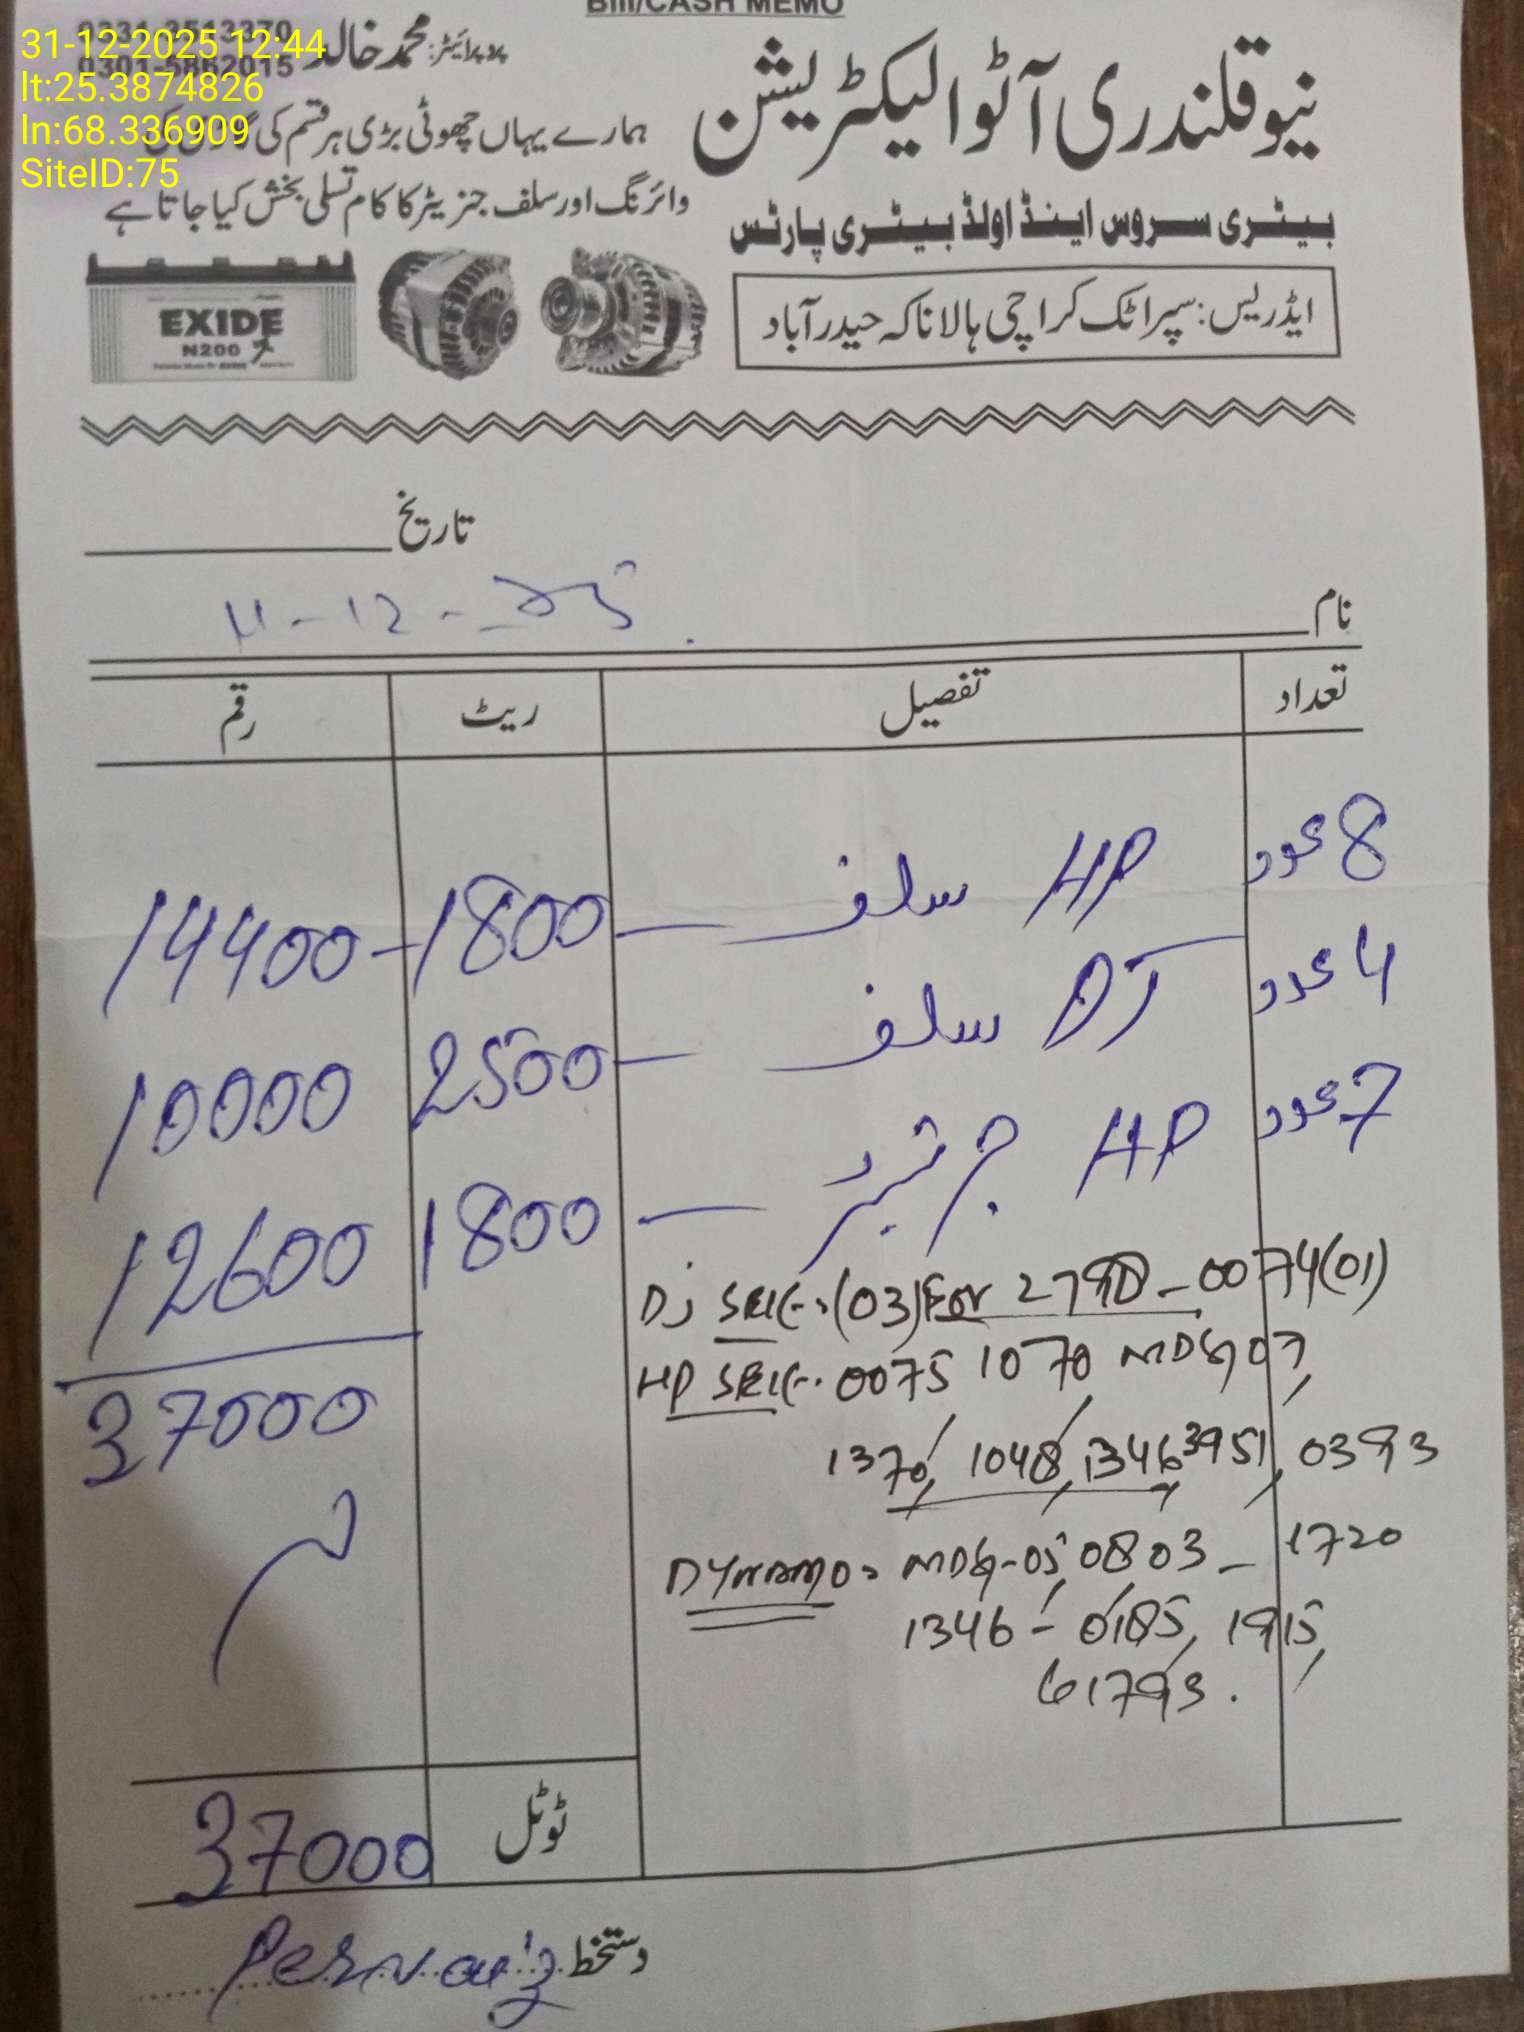 Bill/CASH MEMO
0331-3513370
0301-5862015
31-12-2025 12:44
lt:25.3874826
ln:68.336909
SiteID:75
پروپرائیٹر: محمد خالد
نیو قلندری آٹو الیکٹریشن
ہمارے یہاں چھوٹی بڑی ہر قسم کی گاڑی کی
وائرنگ اور سلف جنریٹر کا کام تسلی بخش کیا جاتا ہے
بیٹری سروس اینڈ اولڈ بیٹری پارٹس
ایڈریس: سپر اٹک کراچی ہالا ناکہ حیدرآباد
EXIDE
N200
تاریخ
نام
تعداد تفصیل ریٹ رقم
8 عدد HP سلف 1800 14400
4 عدد DJ سلف 2500 10000
7 عدد HP جرنیٹر 1800 12600
37000
DJ SELF: (03) For 2790 - 0074(01)
HP SELF: 0075 1070 MDG 07,
1370, 1048, 1346 3951, 0393
DYNAMO = MDG-05, 0803 - 1720
1346 - 0185, 1915,
61793.
ٹوٹل 37000
دستخط Pervaiz